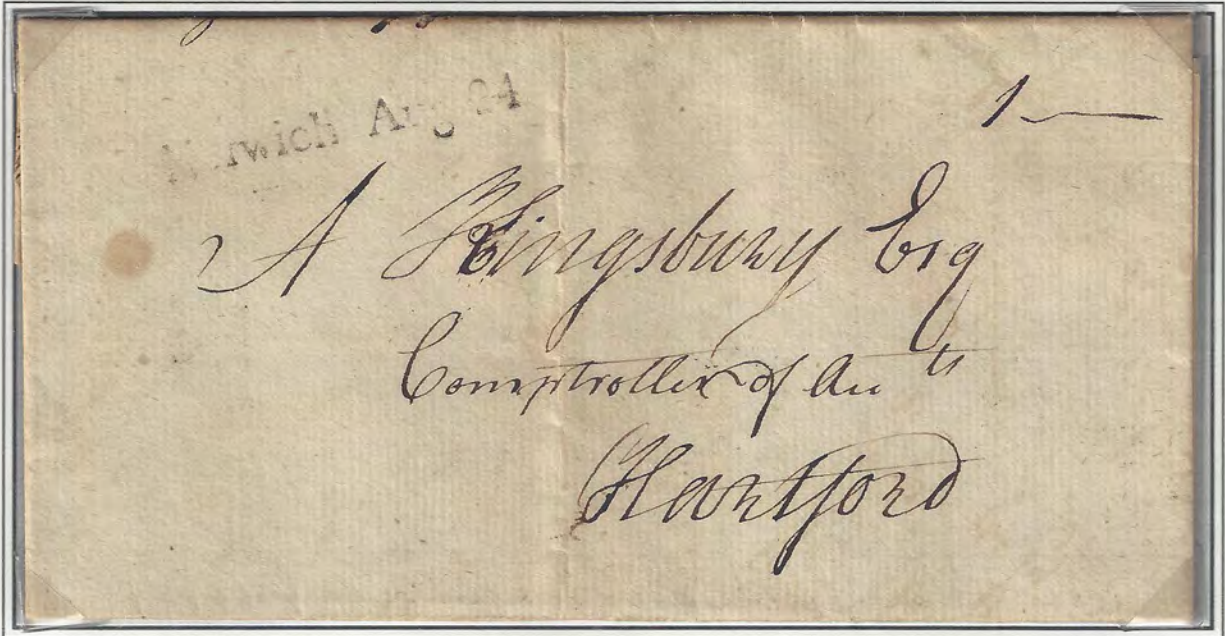 Norwich Aug 24
1
A Kingsbury Esq
Comptroller of Acc ts
Hartford